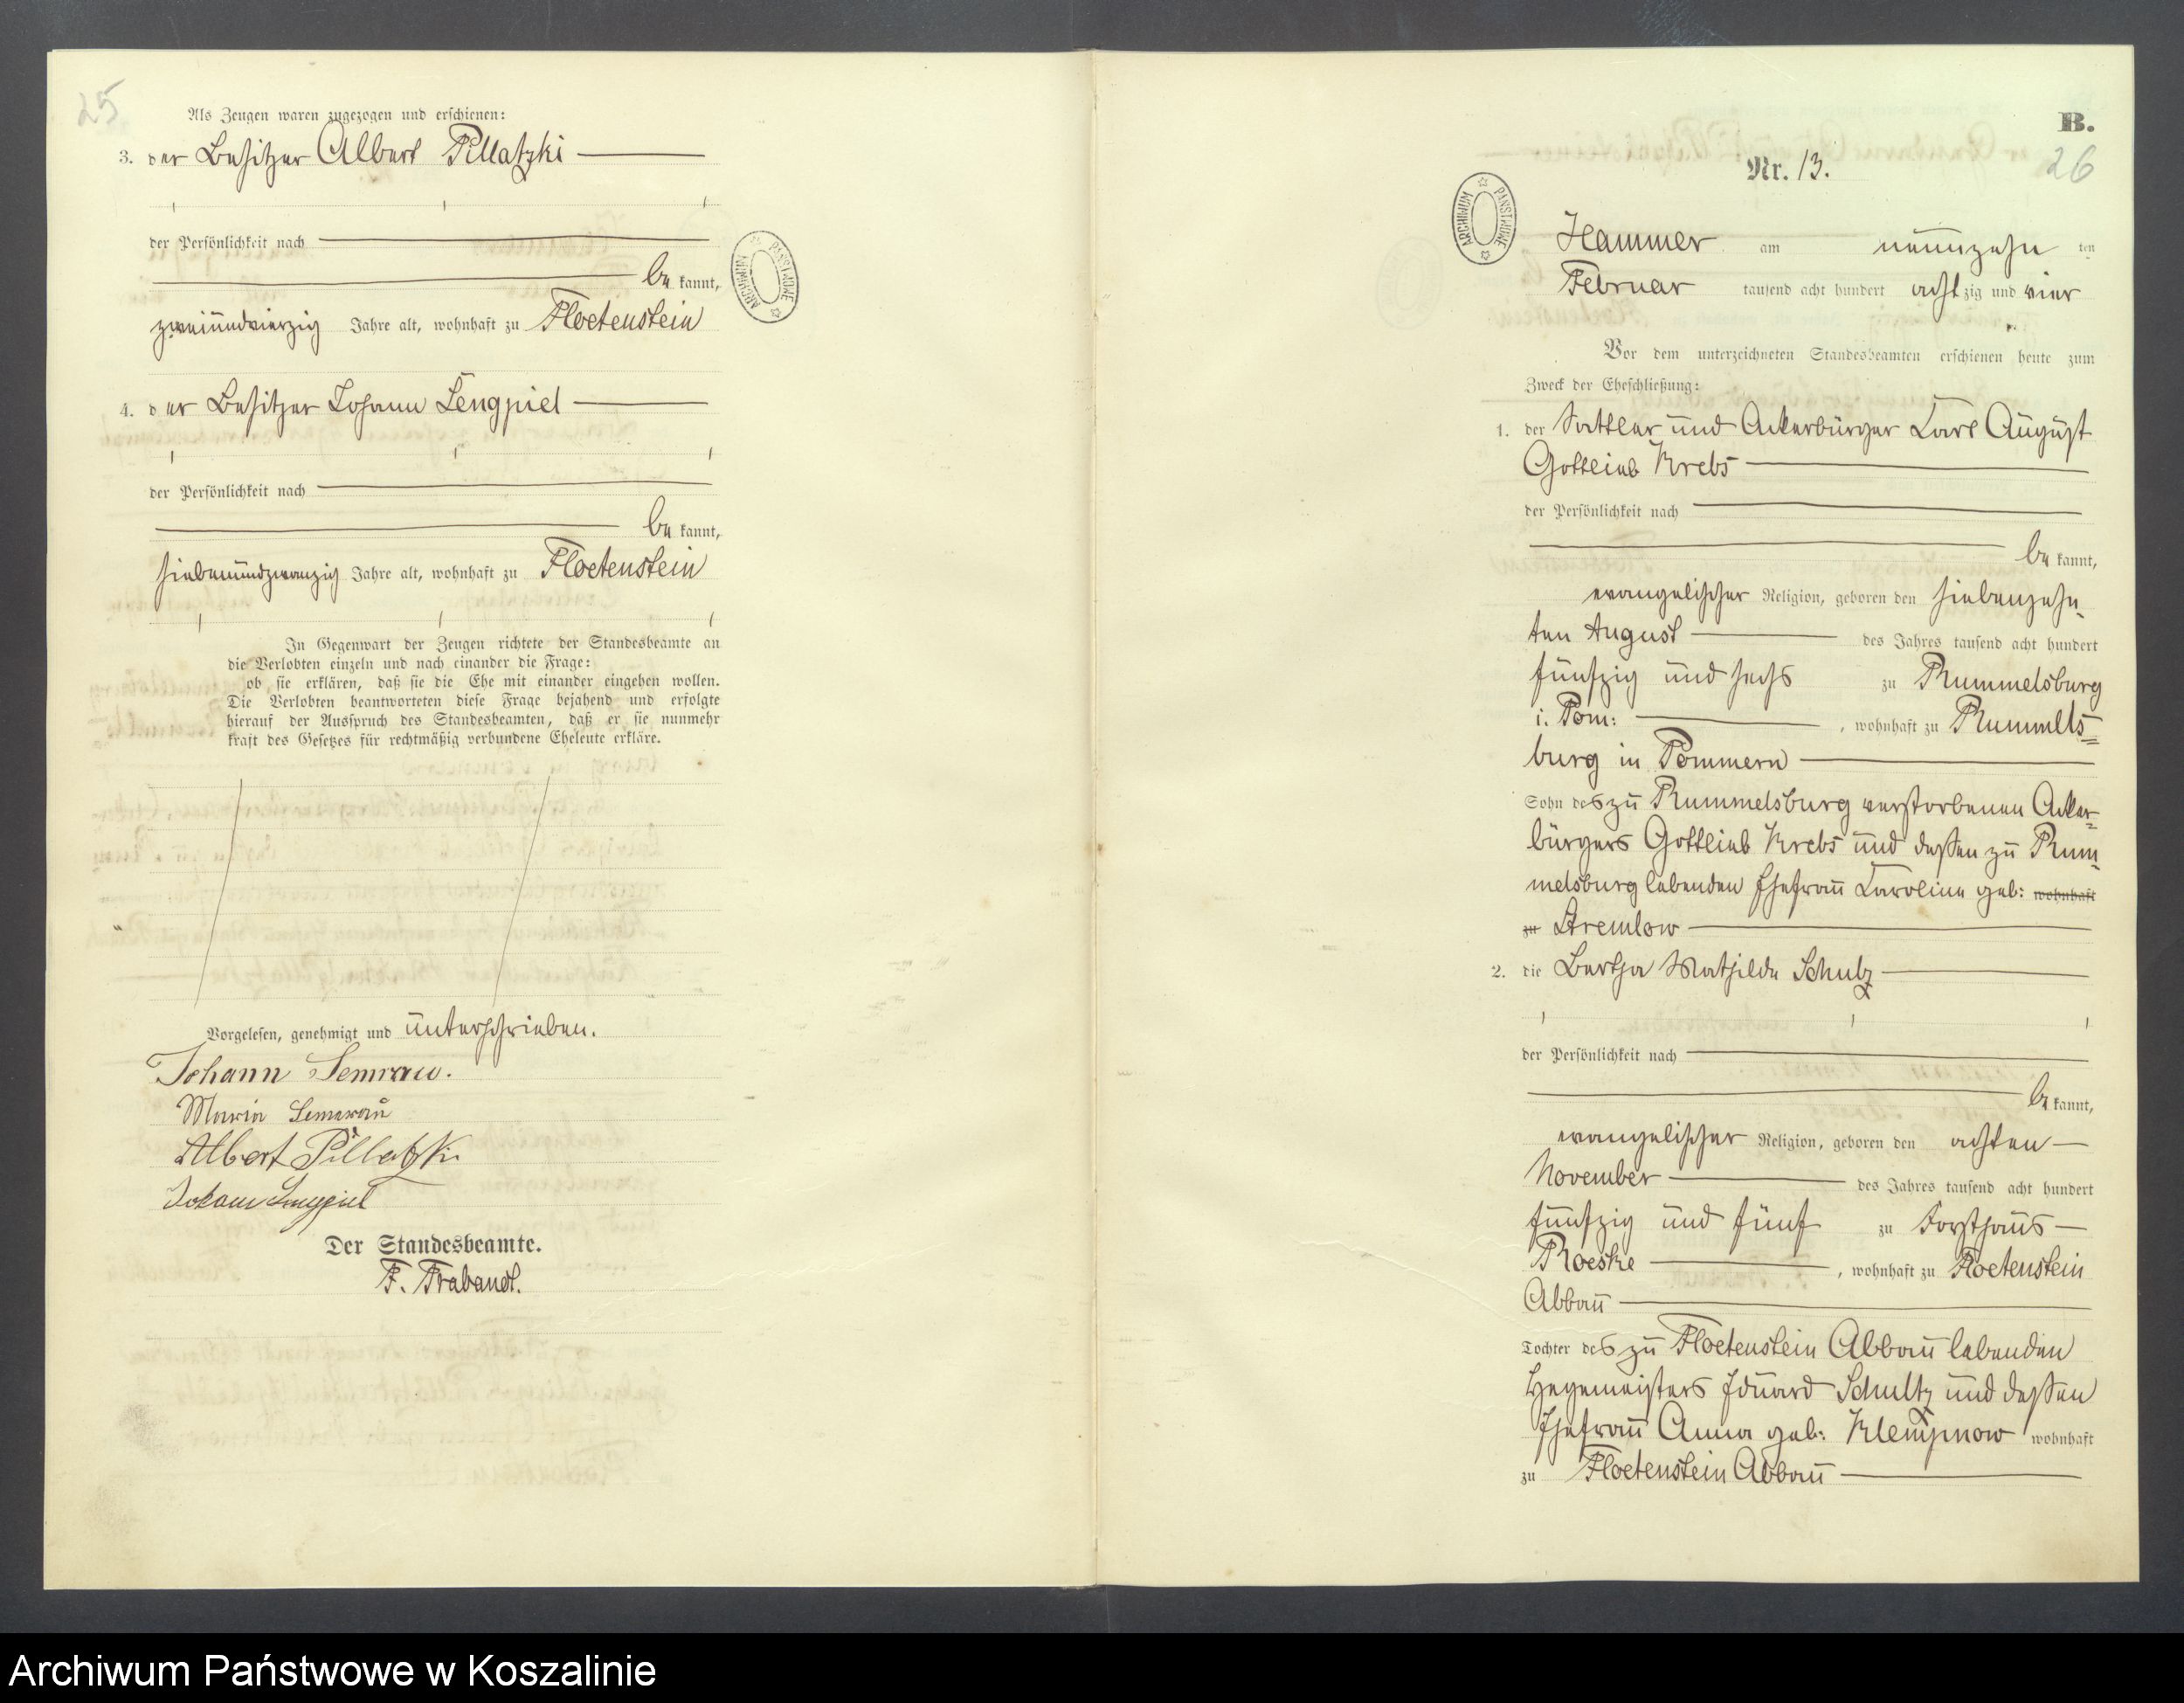 25
Als Zeugen waren zugezogen und erschienen:
3. der Besitzer Albert Pillatzki
der Persönlichkeit nach
be kannt,
zweiundvierzig Jahre alt, wohnhaft zu Floetenstein
4. der Besitzer Johann Lengpiel
der Persönlichkeit nach
be kannt,
siebenundzwanzig Jahre alt, wohnhaft zu Floetenstein
In Gegenwart der Zeugen richtete der Standesbeamte an
die Verlobten einzeln und nach einander die Frage:
ob sie erklären, daß sie die Ehe mit einander eingehen wollen.
Die Verlobten beantworteten diese Frage bejahend und erfolgte
hierauf der Ausspruch des Standesbeamten, daß er sie nunmehr
kraft des Gesetzes für rechtmäßig verbundene Eheleute erkläre.
Vorgelesen, genehmigt und unterschrieben.
Johann Semrau.
Maria Semrau
Albert Pillatzki
Johann Lengpiel
Der Standesbeamte.
F. Trabandt.
ARCHIWUM PAŃSTWOWE
B.
26
Nr. 13.
ARCHIWUM PAŃSTWOWE
Hammer am neunzehn ten
Februar tausend acht hundert achtzig und vier
Vor dem unterzeichneten Standesbeamten erschienen heute zum
Zweck der Eheschließung:
1. der Sattler und Ackerbürger Carl August
Gottlieb Krebs
der Persönlichkeit nach
be kannt,
evangelischer Religion, geboren den siebenzehn-
ten August des Jahres tausend acht hundert
fünfzig und sechs zu Rummelsburg
i. Pom: , wohnhaft zu Rummels=
burg in Pommern
Sohn des zu Rummelsburg verstorbenen Acker=
bürgers Gottlieb Krebs und dessen zu Rum-
melsburg lebenden Ehefrau Caroline geb: wohnhaft
zu Stremlow
2. die Bertha Mathilde Schulz
der Persönlichkeit nach
be kannt,
evangelischer Religion, geboren den achten
November des Jahres tausend acht hundert
fünfzig und fünf zu Forsthaus
Roeske , wohnhaft zu Floetenstein
Abbau
Tochter des zu Floetenstein Abbau lebenden
Hegemeisters Eduard Schultz und dessen
Ehefrau Anna geb: wohnhaft
zu Floetenstein Abbau
Archiwum Państwowe w Koszalinie